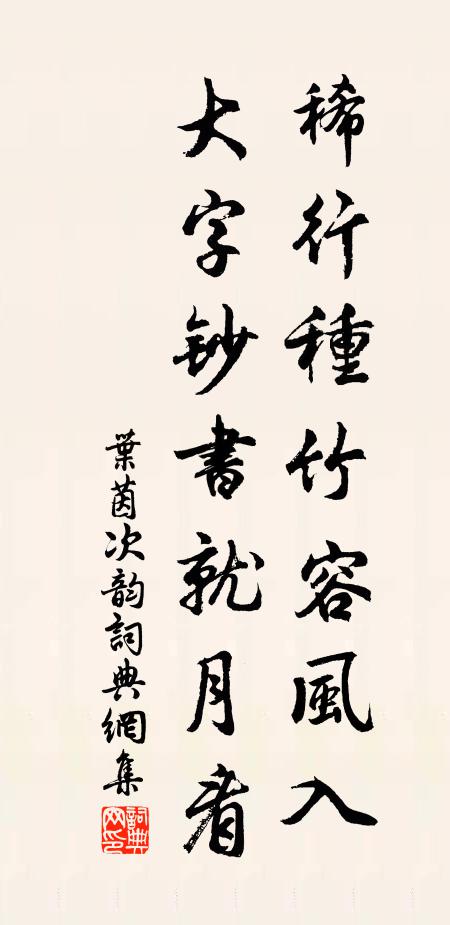 稀行種竹容風入
大字鈔書就月看
葉茵次韵詞典網集
詞典网印